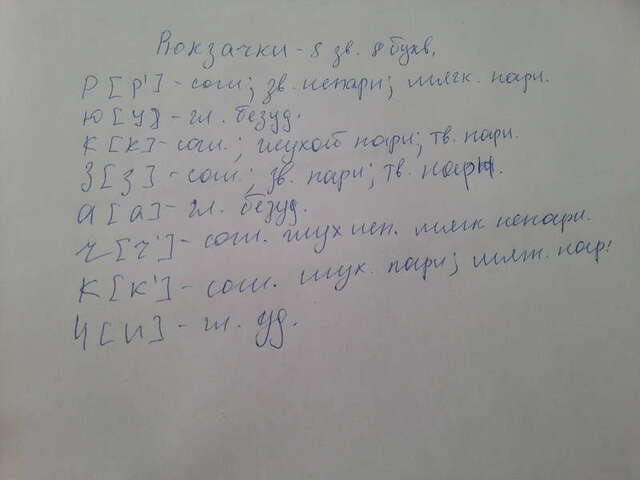 Рюкзачки - 8 зв. 8 букв.
Р [р'] - согл; зв. непарн; мягк. парн.
ю [у] - гл. безуд.
К [к] - согл.; глухой парн; тв. парн.
З [з] - согл; зв. парн; тв. парн.
а [а] - гл. безуд.
ч [ч'] - согл. глух неп. мягк непарн.
К [к'] - согл. глух. парн; мягк. пар.
И [и] - гл. уд.